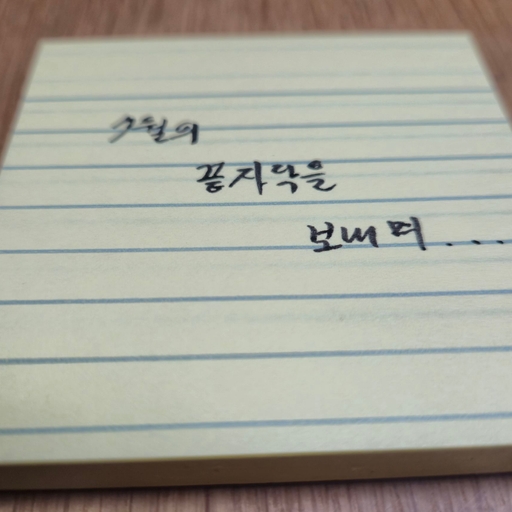 7월의
끝자락을
보내며....